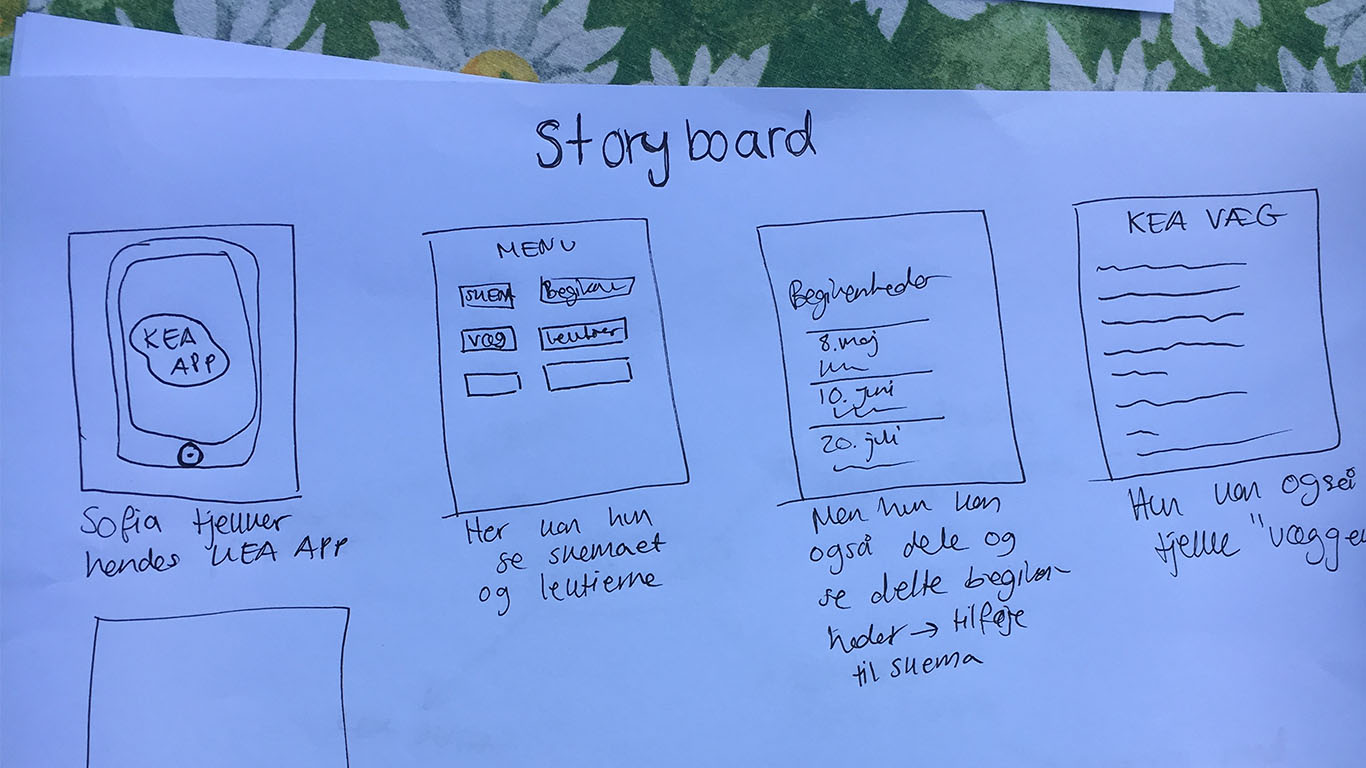 Storyboard
KEA
APP
Sofia tjekker
hendes KEA APP
MENU
SKEMA
Begiven
væg
lektier
Her kan hun
se skemaet
og lektierne
Begivenheder
8. maj
10. juni
20. juli
Men hun kan
også dele og
se delte begiven
heder → tilføje
til skema
KEA VÆG
Hun kan også
tjekke "væggen